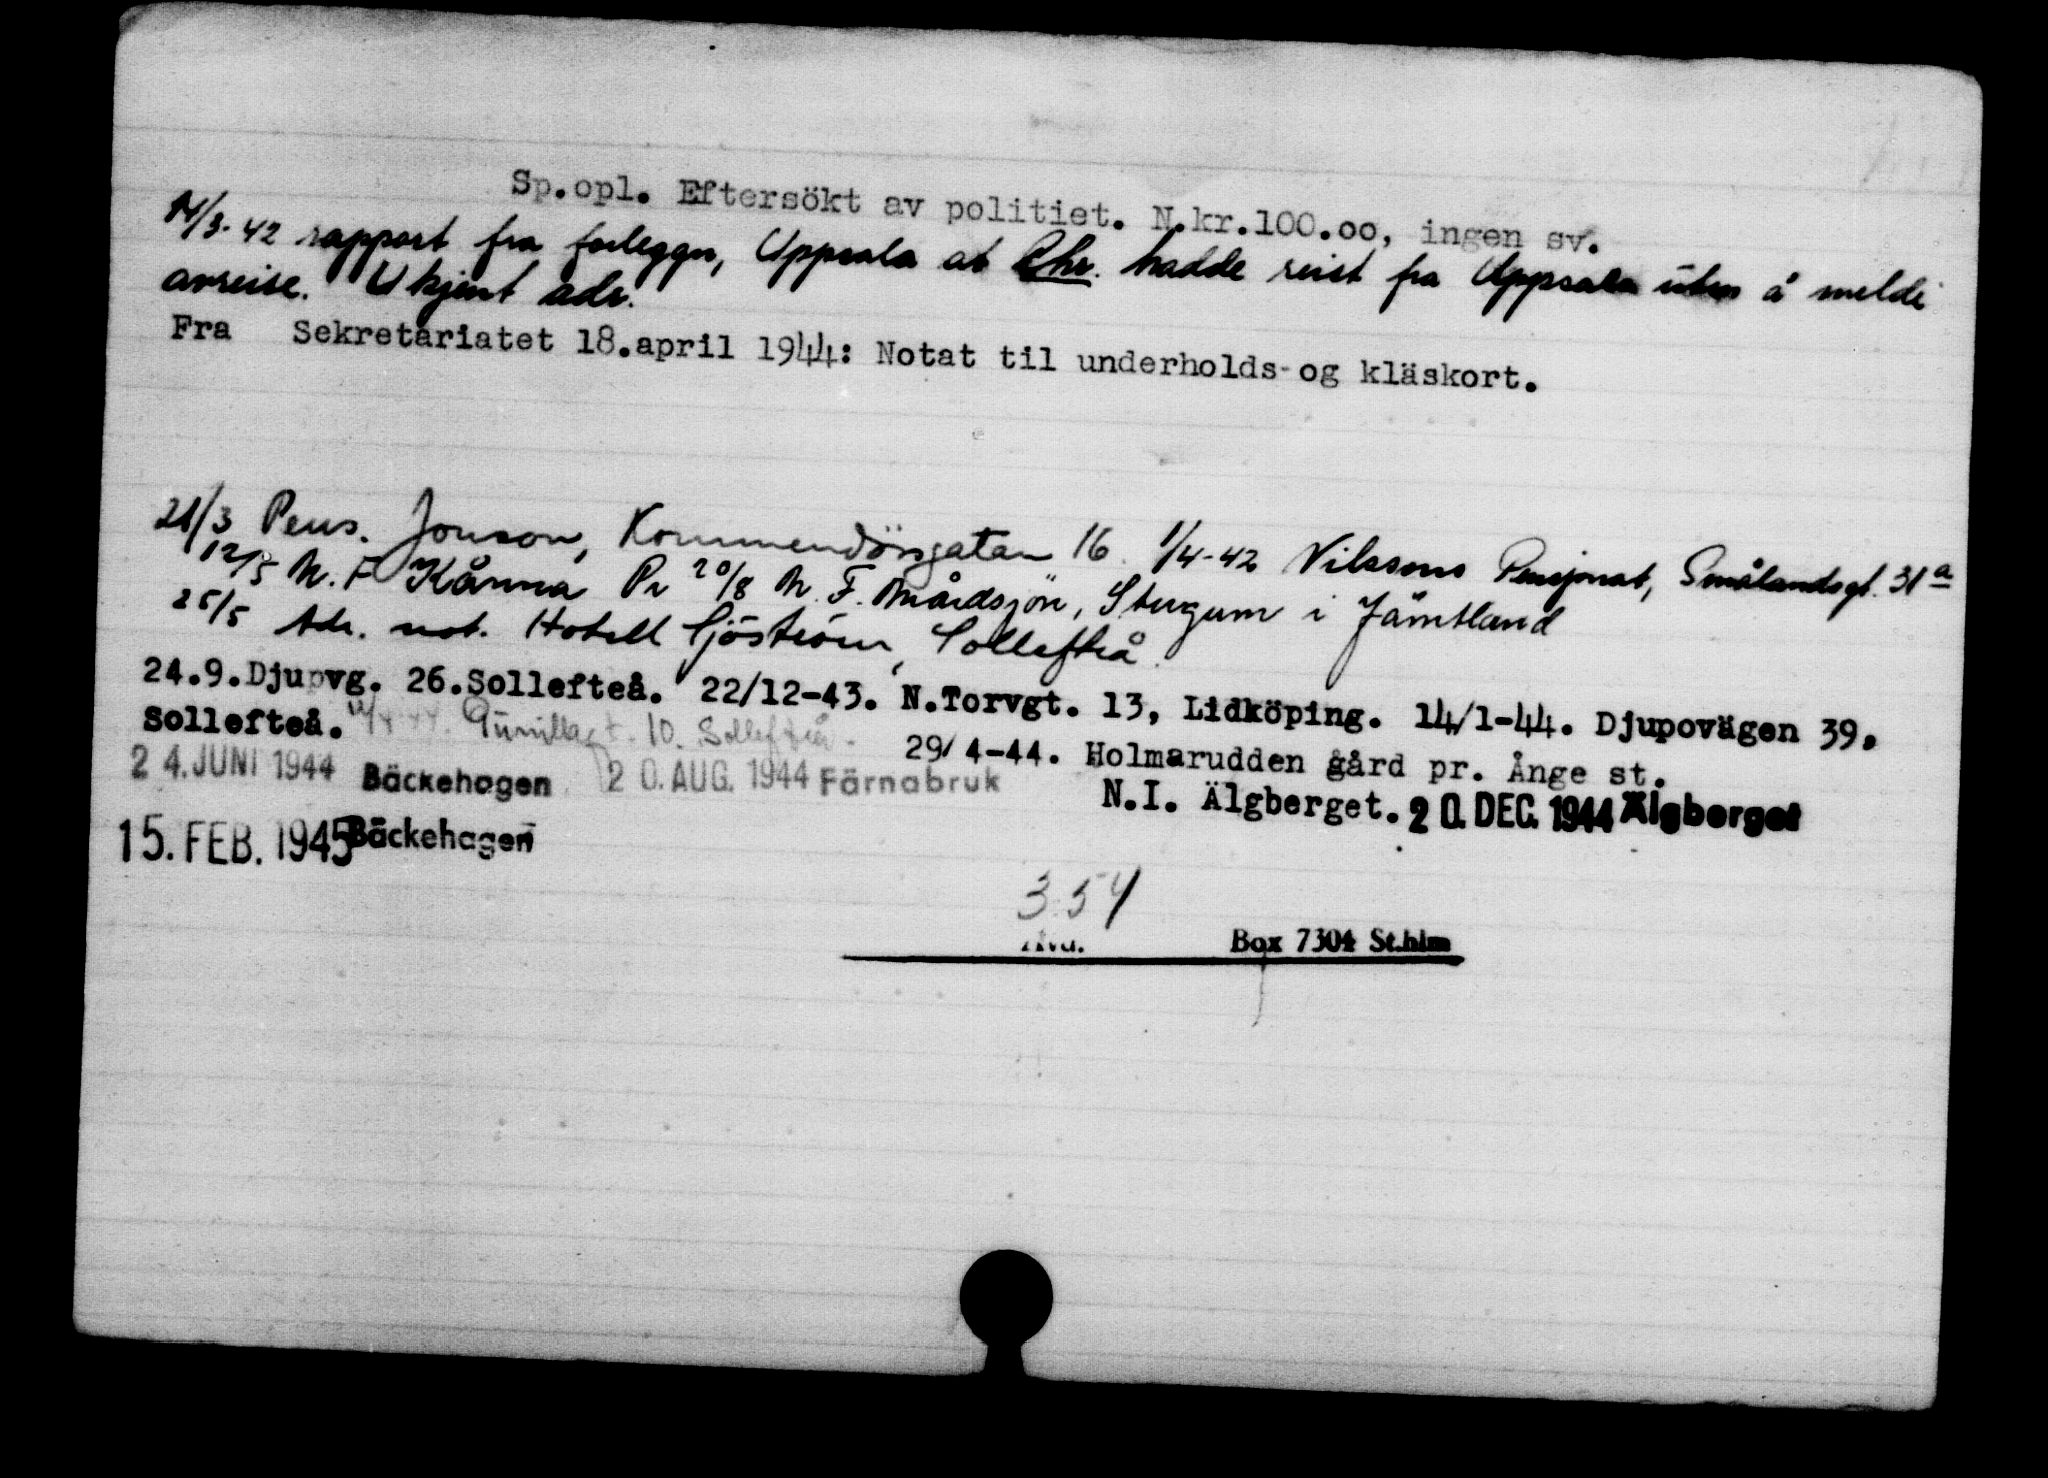 Sp.opl. Eftersökt av politiet. N.kr.100.oo, ingen sv.
14/3-42 rapport fra forleggn, Uppsala at Chr. hadde reist fra Uppsala uten å melde
avreise. Ukjent adr.
Fra Sekretariatet 18.april 1944: Notat til underholds-og kläskort.
21/3 Pens. Jonson, Kommendörsgatan 16. 1/4-42 Nilssons Pensjonat, Smålandsgt. 31a
12/5 N.F. Kånna Pr 20/8 N.F. Mårdsjön, Stugum i Jämtland
25/5 Adr. not. Hotell Sjöström, Sollefteå.
24.9.Djupvg. 26.Sollefteå. 22/12-43. N.Torvgt. 13, Lidköping. 14/1-44. Djupovägen 39,
Sollefteå. Gunillagt. 10. Sollefteå. 29/4-44. Holmarudden gård pr. Ånge st.
24. JUNI 1944 Bäckehagen 20. AUG. 1944 Färnabruk N.I. Älgberget. 20. DEC. 1944 Älgberget
15. FEB. 1945 Bäckehagen
354
Avd. Box 7304 St.hlm